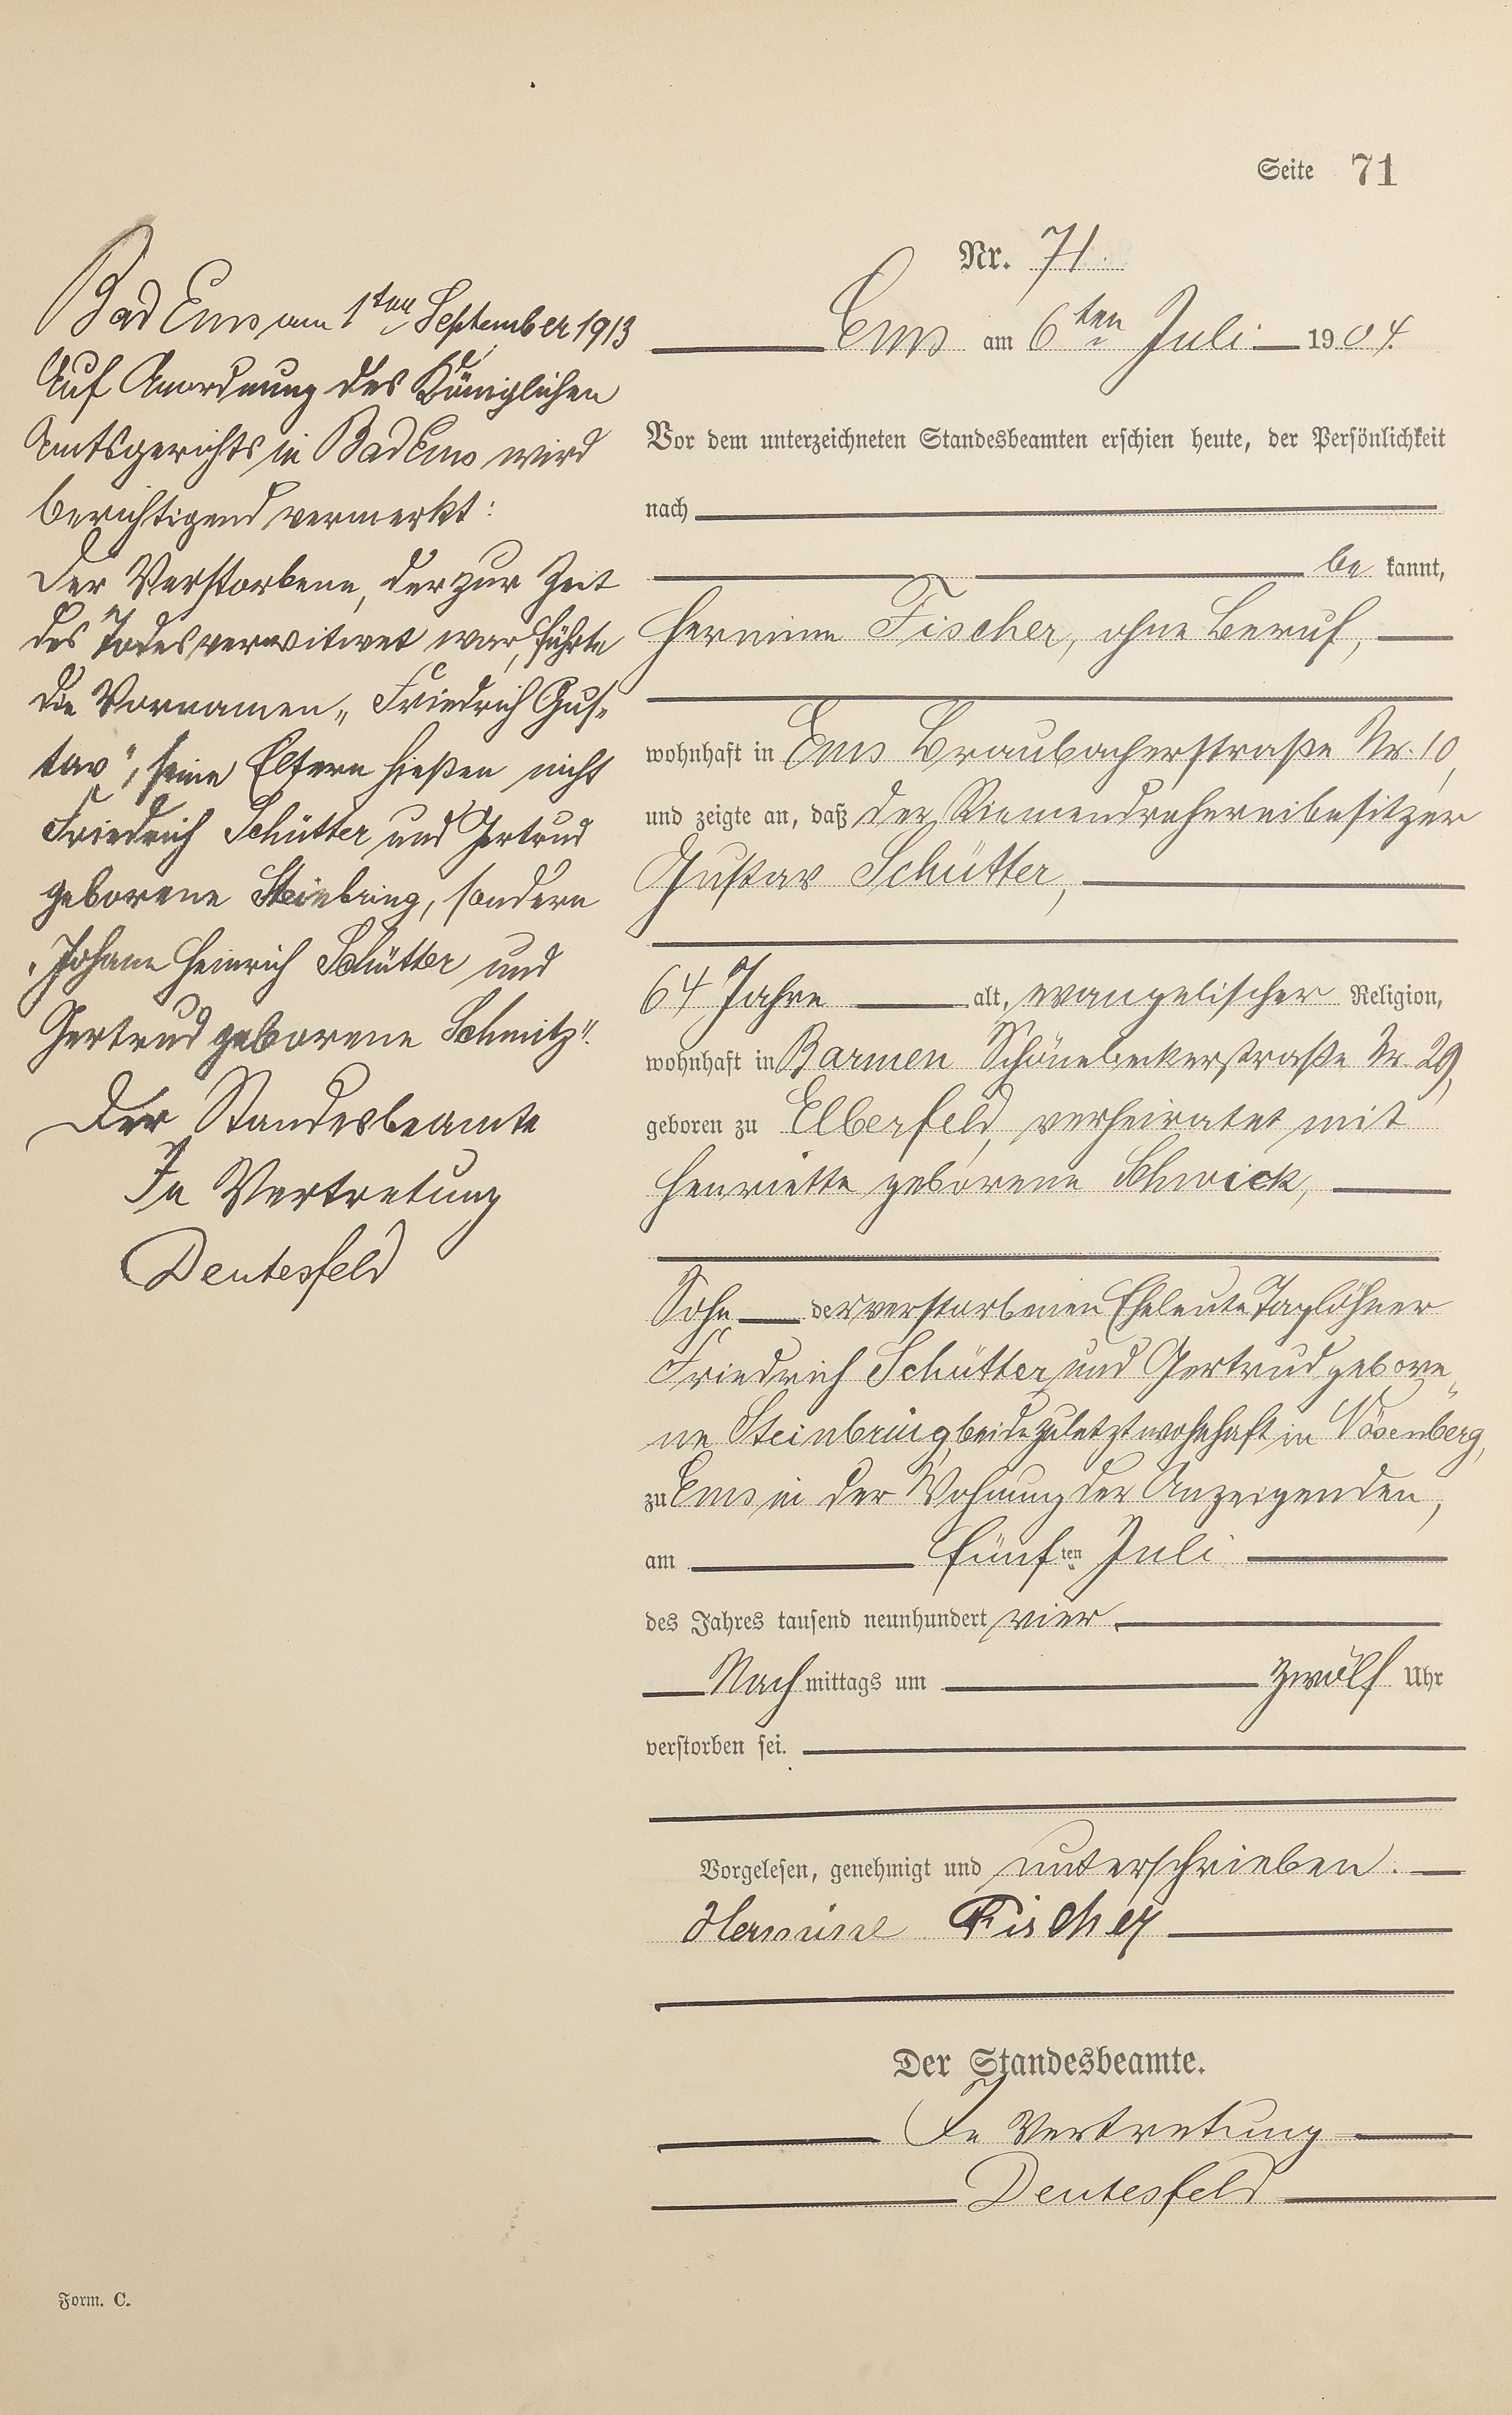 Seite 71
Nr. 71.
Bad Ems am 1ten September 1913
Auf Anordnung des Königlichen
Amtsgerichts in Bad Ems wird
berichtigend vermerkt:
Der Verstorbene, der zur Zeit
des Todes verwitwet war, führte
die Vornamen „Friedrich Gus-
tav", seine Eltern hießen nicht
Friedrich Schütter und Gertrud
geborene Steinbring, sondern
„Johann Heinrich Schütter und
Gertrud geborene Schmitz".
Der Standesbeamte
In Vertretung
Deutesfeld
Ems am 6ten Juli 1904.
Vor dem unterzeichneten Standesbeamten erschien heute, der Persönlichkeit
nach
be kannt,
Hermine Fischer, ohne Beruf,
wohnhaft in Ems Braubacherstraße Nr. 10,
und zeigte an, daß der Riemendrehereibesitzer
Gustav Schütter,
64 Jahre alt, evangelischer Religion,
wohnhaft in Barmen Schönebeckerstraße Nr. 29,
geboren zu Elberfeld, verheiratet mit
Henriette geborene Schwick,
Sohn der verstorbenen Eheleute Taglöhner
Friedrich Schütter und Gertrud gebore-
ne Steinbring, beide zuletzt wohnhaft in
zu Ems in der Wohnung der Anzeigenden,
am fünften Juli
des Jahres tausend neunhundert vier
Nachmittags um zwölf Uhr
verstorben sei.
Vorgelesen, genehmigt und unterschrieben.
Hermine Fischer
Der Standesbeamte.
In Vertretung
Deutesfeld
Form. C.